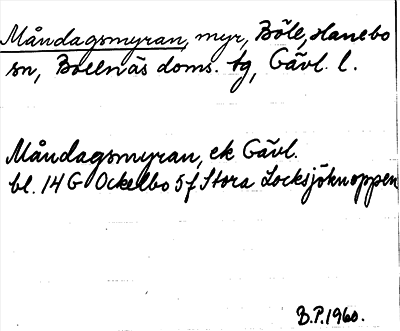 Måndagsmyran, myr, Böle, Hanebo
sn, Bollnäs doms. tg, Gävl. l.
Måndagsmyran, ek Gävl.
bl. 14 G Ockelbo 5 f Stora Locksjöknoppen
B.P. 1960.